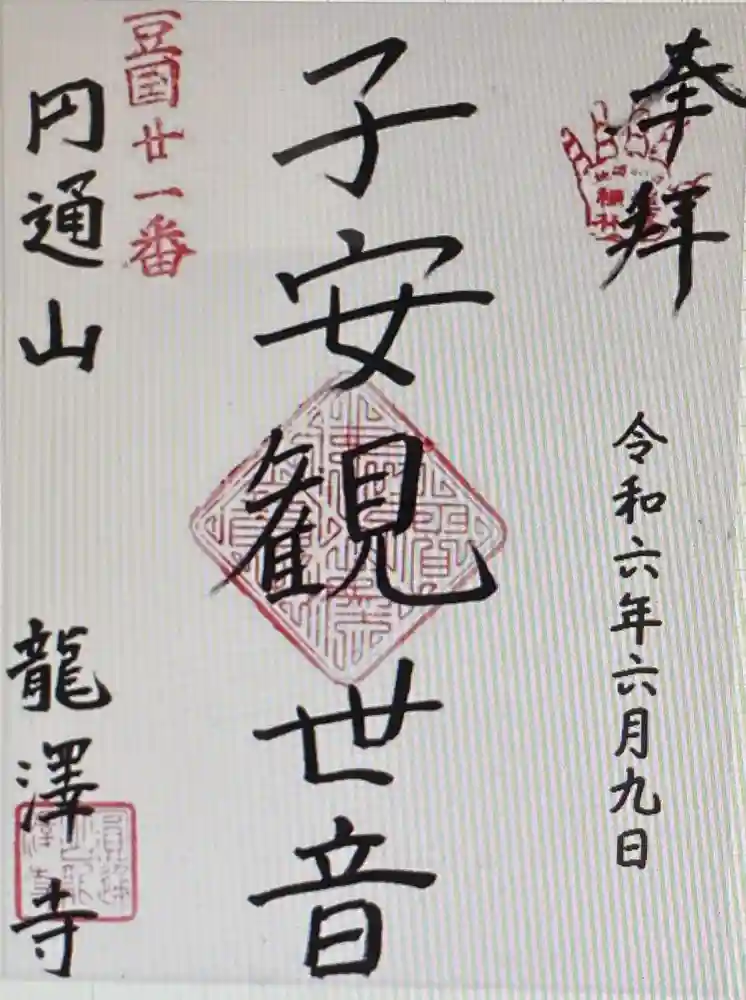 奉拝
令和六年六月九日
子安観世音
豆国廿一番
円通山
龍澤寺